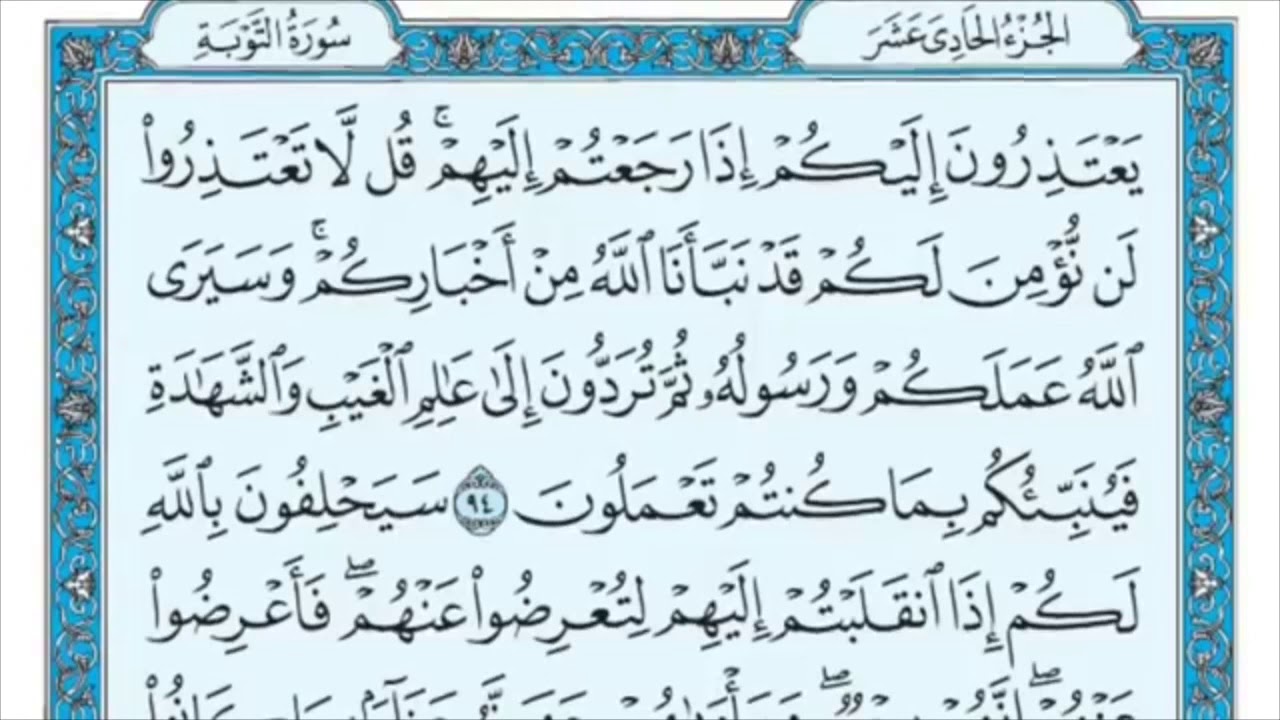 الجُزْءُ الحَادِى عَشَرَ
سُورَةُ التَّوْبَةِ
يَعْتَذِرُونَ إِلَيْكُمْ إِذَا رَجَعْتُمْ إِلَيْهِمْ ۚ قُل لَّا تَعْتَذِرُوا۟
لَن نُّؤْمِنَ لَكُمْ قَدْ نَبَّأَنَا ٱللَّهُ مِنْ أَخْبَارِكُمْ ۚ وَسَيَرَى
ٱللَّهُ عَمَلَكُمْ وَرَسُولُهُۥ ثُمَّ تُرَدُّونَ إِلَىٰ عَـٰلِمِ ٱلْغَيْبِ وَٱلشَّهَـٰدَةِ
فَيُنَبِّئُكُم بِمَا كُنتُمْ تَعْمَلُونَ ٩٤ سَيَحْلِفُونَ بِٱللَّهِ
لَكُمْ إِذَا ٱنقَلَبْتُمْ إِلَيْهِمْ لِتُعْرِضُوا۟ عَنْهُمْ ۖ فَأَعْرِضُوا۟